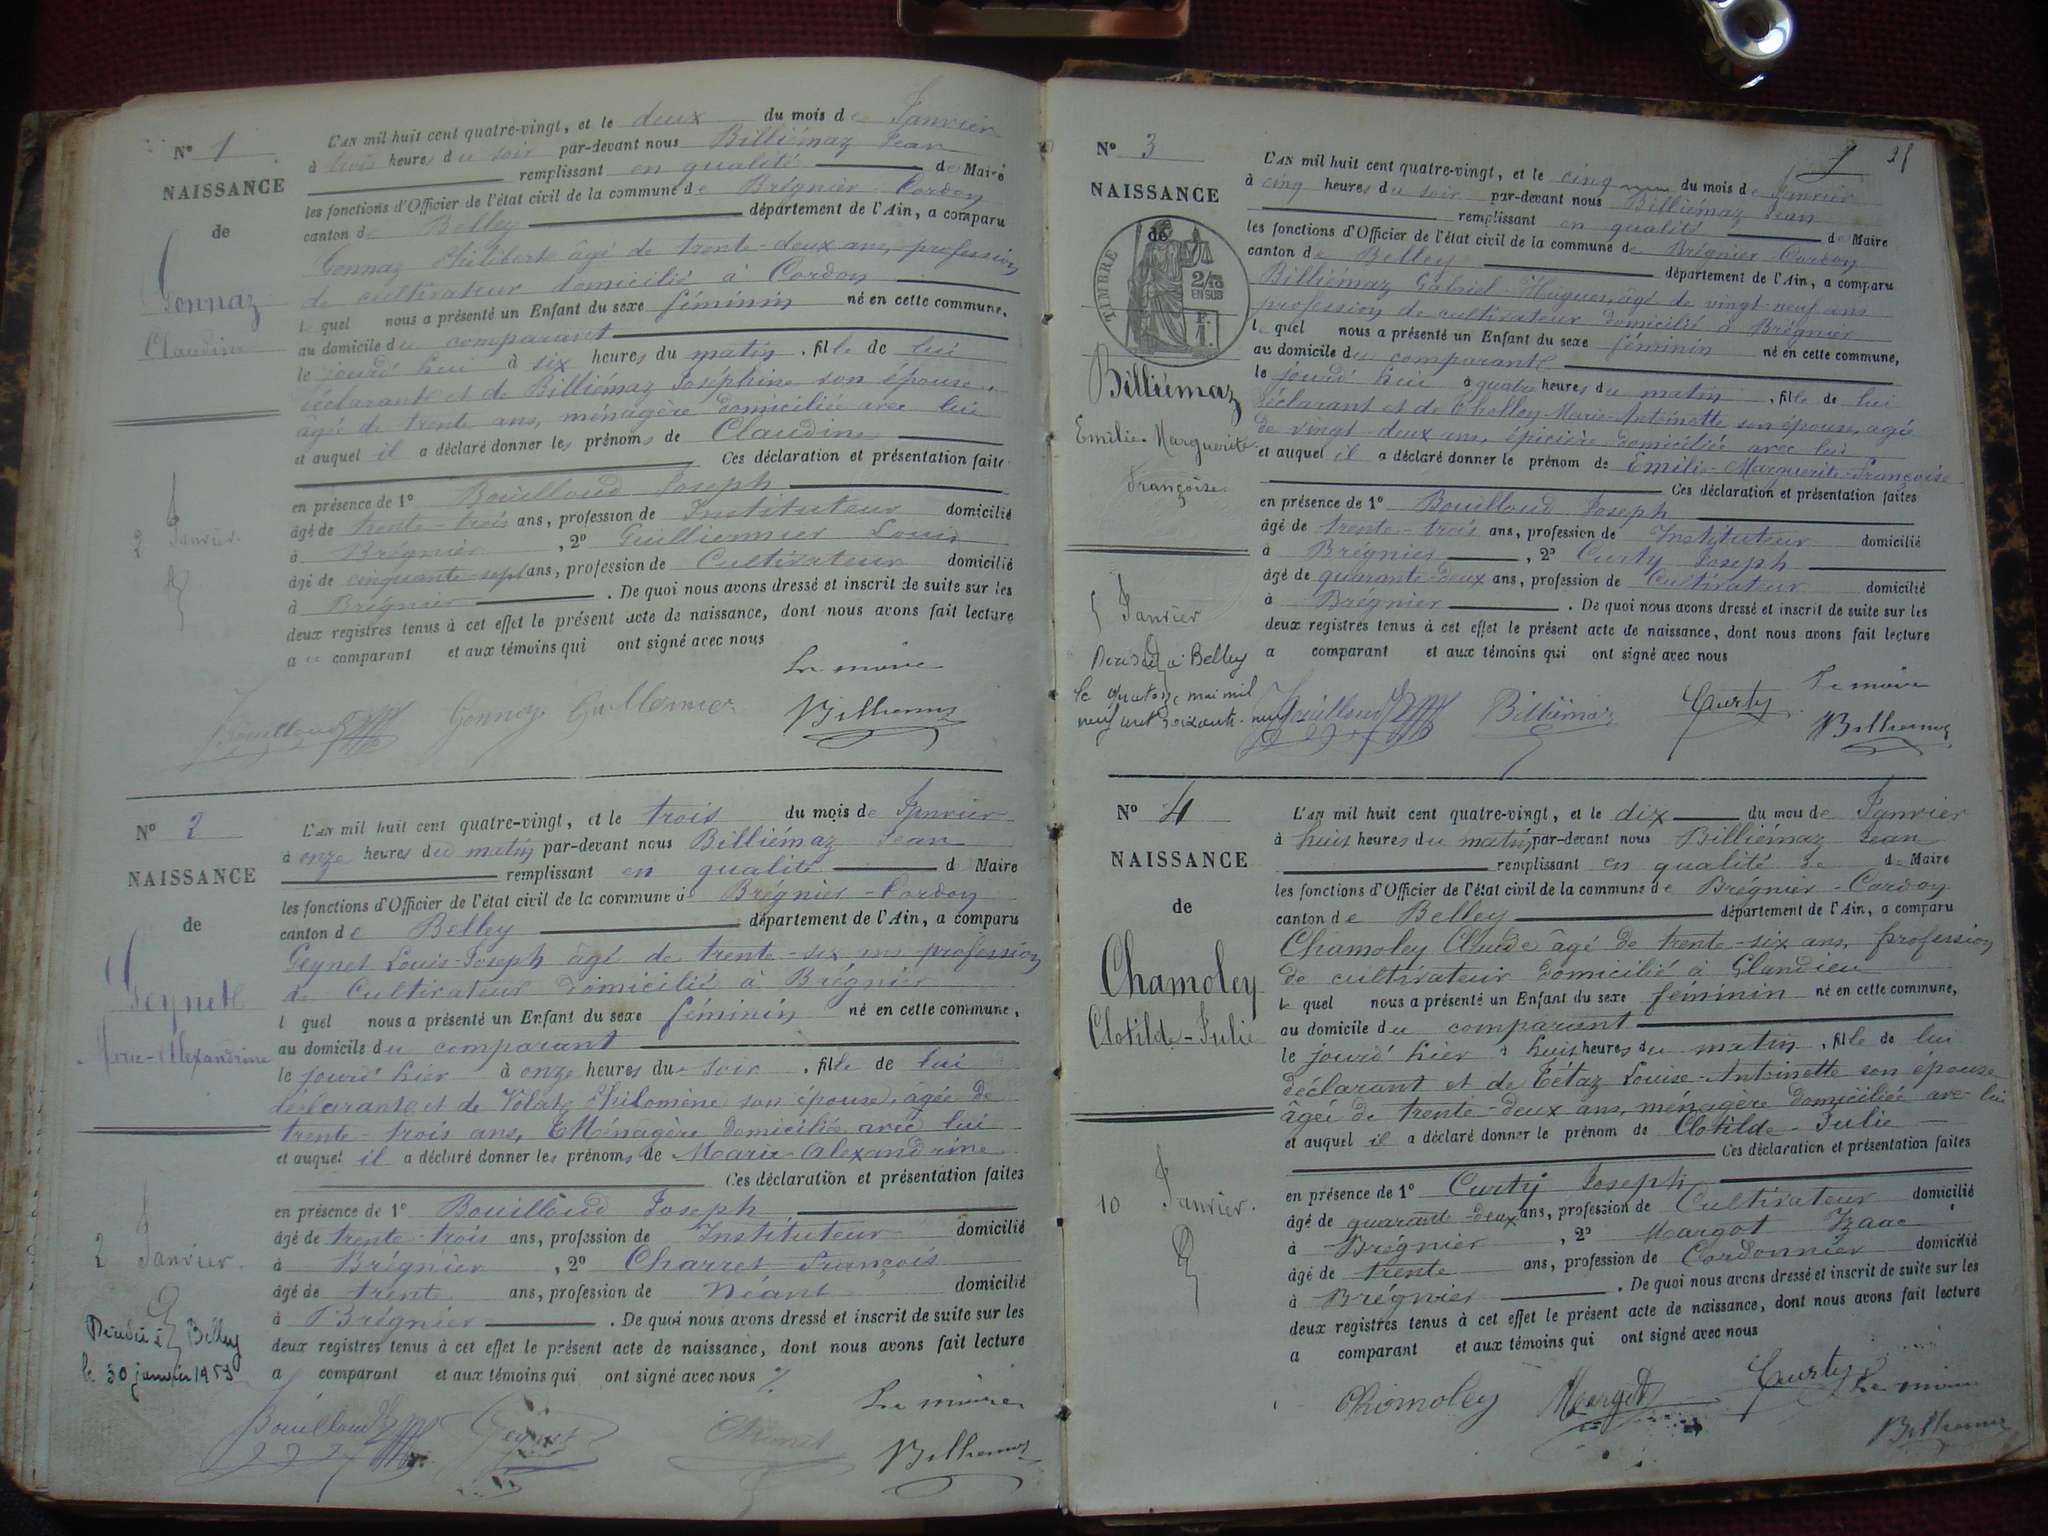 Nº 1
NAISSANCE
de
Gonnaz
Claudine
2 Janvier
L'AN mil huit cent quatre-vingt, et le deux du mois de Janvier
à trois heures du soir par-devant nous Billiémaz Jean
remplissant en qualité de Maire
les fonctions d'Officier de l'état civil de la commune de Brégnier-Cordon
canton de Belley département de l'Ain, a comparu
Gonnaz Philibert âgé de trente-deux ans, profession
de cultivateur domicilié à Cordon
lequel nous a présenté un Enfant du sexe féminin né en cette commune,
au domicile du comparant
le jourd'hui à six heures du matin, fille de lui
déclarant et de Billiémaz Joséphine son épouse,
agée de trente ans, ménagère domiciliée avec lui
et auquel il a déclaré donner les prénoms de Claudine
Ces déclaration et présentation faites
en présence de 1º Bouilloud Joseph
âgé de trente-trois ans, profession de Instituteur domicilié
à Brégnier, 2º Guillermier Louis
âgé de cinquante-sept ans, profession de Cultivateur domicilié
à Brégnier. De quoi nous avons dressé et inscrit de suite sur les
deux registres tenus à cet effet le présent acte de naissance, dont nous avons fait lecture
a ce comparant et aux témoins qui ont signé avec nous
Le maire
Bouilloud Gonnaz Guillermier Billiemaz
Nº 2
NAISSANCE
de
Geynet
Marie-Alexandrine
2 Janvier.
Décédée à Belley
le 30 janvier 1959
L'AN mil huit cent quatre-vingt, et le trois du mois de Janvier
à onze heures du matin par-devant nous Billiémaz Jean
remplissant en qualité d Maire
les fonctions d'Officier de l'état civil de la commune de Brégnier-Cordon
canton de Belley département de l'Ain, a comparu
Geynet Louis-Joseph âgé de trente-six ans profession
de Cultivateur domicilié à Brégnier
lequel nous a présenté un Enfant du sexe féminin né en cette commune,
au domicile du comparant
le jourd'hier à onze heures du soir, fille de lui
déclarant et de Volat Philomène son épouse, âgée de
trente-trois ans, Ménagère domiciliée avec lui
et auquel il a déclaré donner les prénoms de Marie-Alexandrine
Ces déclaration et présentation faites
en présence de 1º Bouilloud Joseph
âgé de trente-trois ans, profession de Instituteur domicilié
à Brégnier, 2º Charret François
âgé de trente ans, profession de Néant domicilié
à Brégnier. De quoi nous avons dressé et inscrit de suite sur les
deux registres tenus à cet effet le présent acte de naissance, dont nous avons fait lecture
a comparant et aux témoins qui ont signé avec nous
Le maire
Bouilloud Geynet Billiemaz
Nº 3
NAISSANCE
de
TIMBRE
2/10
EN SUS
F.
1.
Billiémaz
Emilie-Marguerite
Françoise
5 Janvier
Décédée à Belley
le quatorze mai mil
neuf cent soixante-neuf
L'AN mil huit cent quatre-vingt, et le cinq du mois de Janvier
à cinq heures du soir par-devant nous Billiémaz Jean
remplissant en qualité de Maire
les fonctions d'Officier de l'état civil de la commune de Brégnier-Cordon
canton de Belley département de l'Ain, a comparu
Billiémaz Gabriel-Hugues, âgé de vingt-neuf ans
profession de cultivateur domicilié à Brégnier
lequel nous a présenté un Enfant du sexe féminin né en cette commune,
au domicile du comparant
le jourd'hui à quatre heures du matin, fille de lui
déclarant et de Cholley Marie-Antoinette son épouse, agée
de vingt-deux ans, épicière domiciliée avec lui
et auquel il a déclaré donner le prénom de Emilie-Marguerite-Françoise
Ces déclaration et présentation faites
en présence de 1º Bouilloud Joseph
âgé de trente-trois ans, profession de Instituteur domicilié
à Brégnier, 2º Curty Joseph
âgé de quarante-deux ans, profession de Cultivateur domicilié
à Brégnier. De quoi nous avons dressé et inscrit de suite sur les
deux registres tenus à cet effet le présent acte de naissance, dont nous avons fait lecture
a comparant et aux témoins qui ont signé avec nous
Le maire
Bouilloud Billiémaz Curty Billiemaz
Nº 4
NAISSANCE
de
Chamoley
Clotilde-Julie
10 Janvier.
L'AN mil huit cent quatre-vingt, et le dix du mois de Janvier
à huit heures du matin par-devant nous Billiémaz Jean
remplissant en qualité de de Maire
les fonctions d'Officier de l'état civil de la commune de Brégnier-Cordon
canton de Belley département de l'Ain, a comparu
Chamoley Claude âgé de trente-six ans, profession
de cultivateur domicilié à Glandieu
lequel nous a présenté un Enfant du sexe féminin né en cette commune,
au domicile du comparant
le jourd'hier à huit heures du matin, fille de lui
déclarant et de Tétaz Louise-Antoinette son épouse
âgée de trente-deux ans, ménagère domiciliée avec lui
et auquel il a déclaré donner le prénom de Clotilde-Julie
Ces déclaration et présentation faites
en présence de 1º Curty Joseph
âgé de quarante-deux ans, profession de Cultivateur domicilié
à Brégnier, 2º Margot Izaac
âgé de trente ans, profession de Cordonnier domicilié
à Brégnier. De quoi nous avons dressé et inscrit de suite sur les
deux registres tenus à cet effet le présent acte de naissance, dont nous avons fait lecture
a comparant et aux témoins qui ont signé avec nous
Chamoley Margot Curty Le maire
Billiemaz